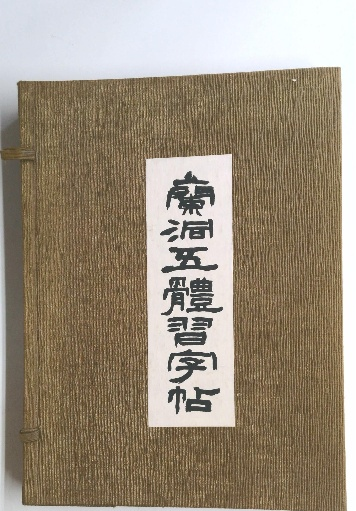 蘭洞五體習字帖